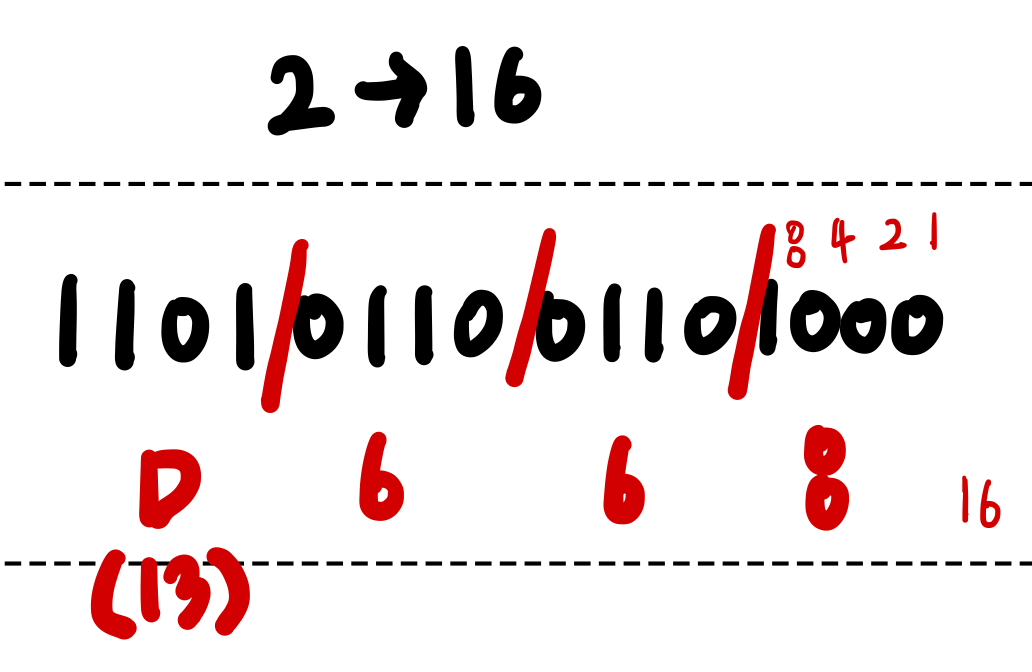 2→16
8 4 2 1
1101/0110/0110/1000
D 6 6 8 16
(13)